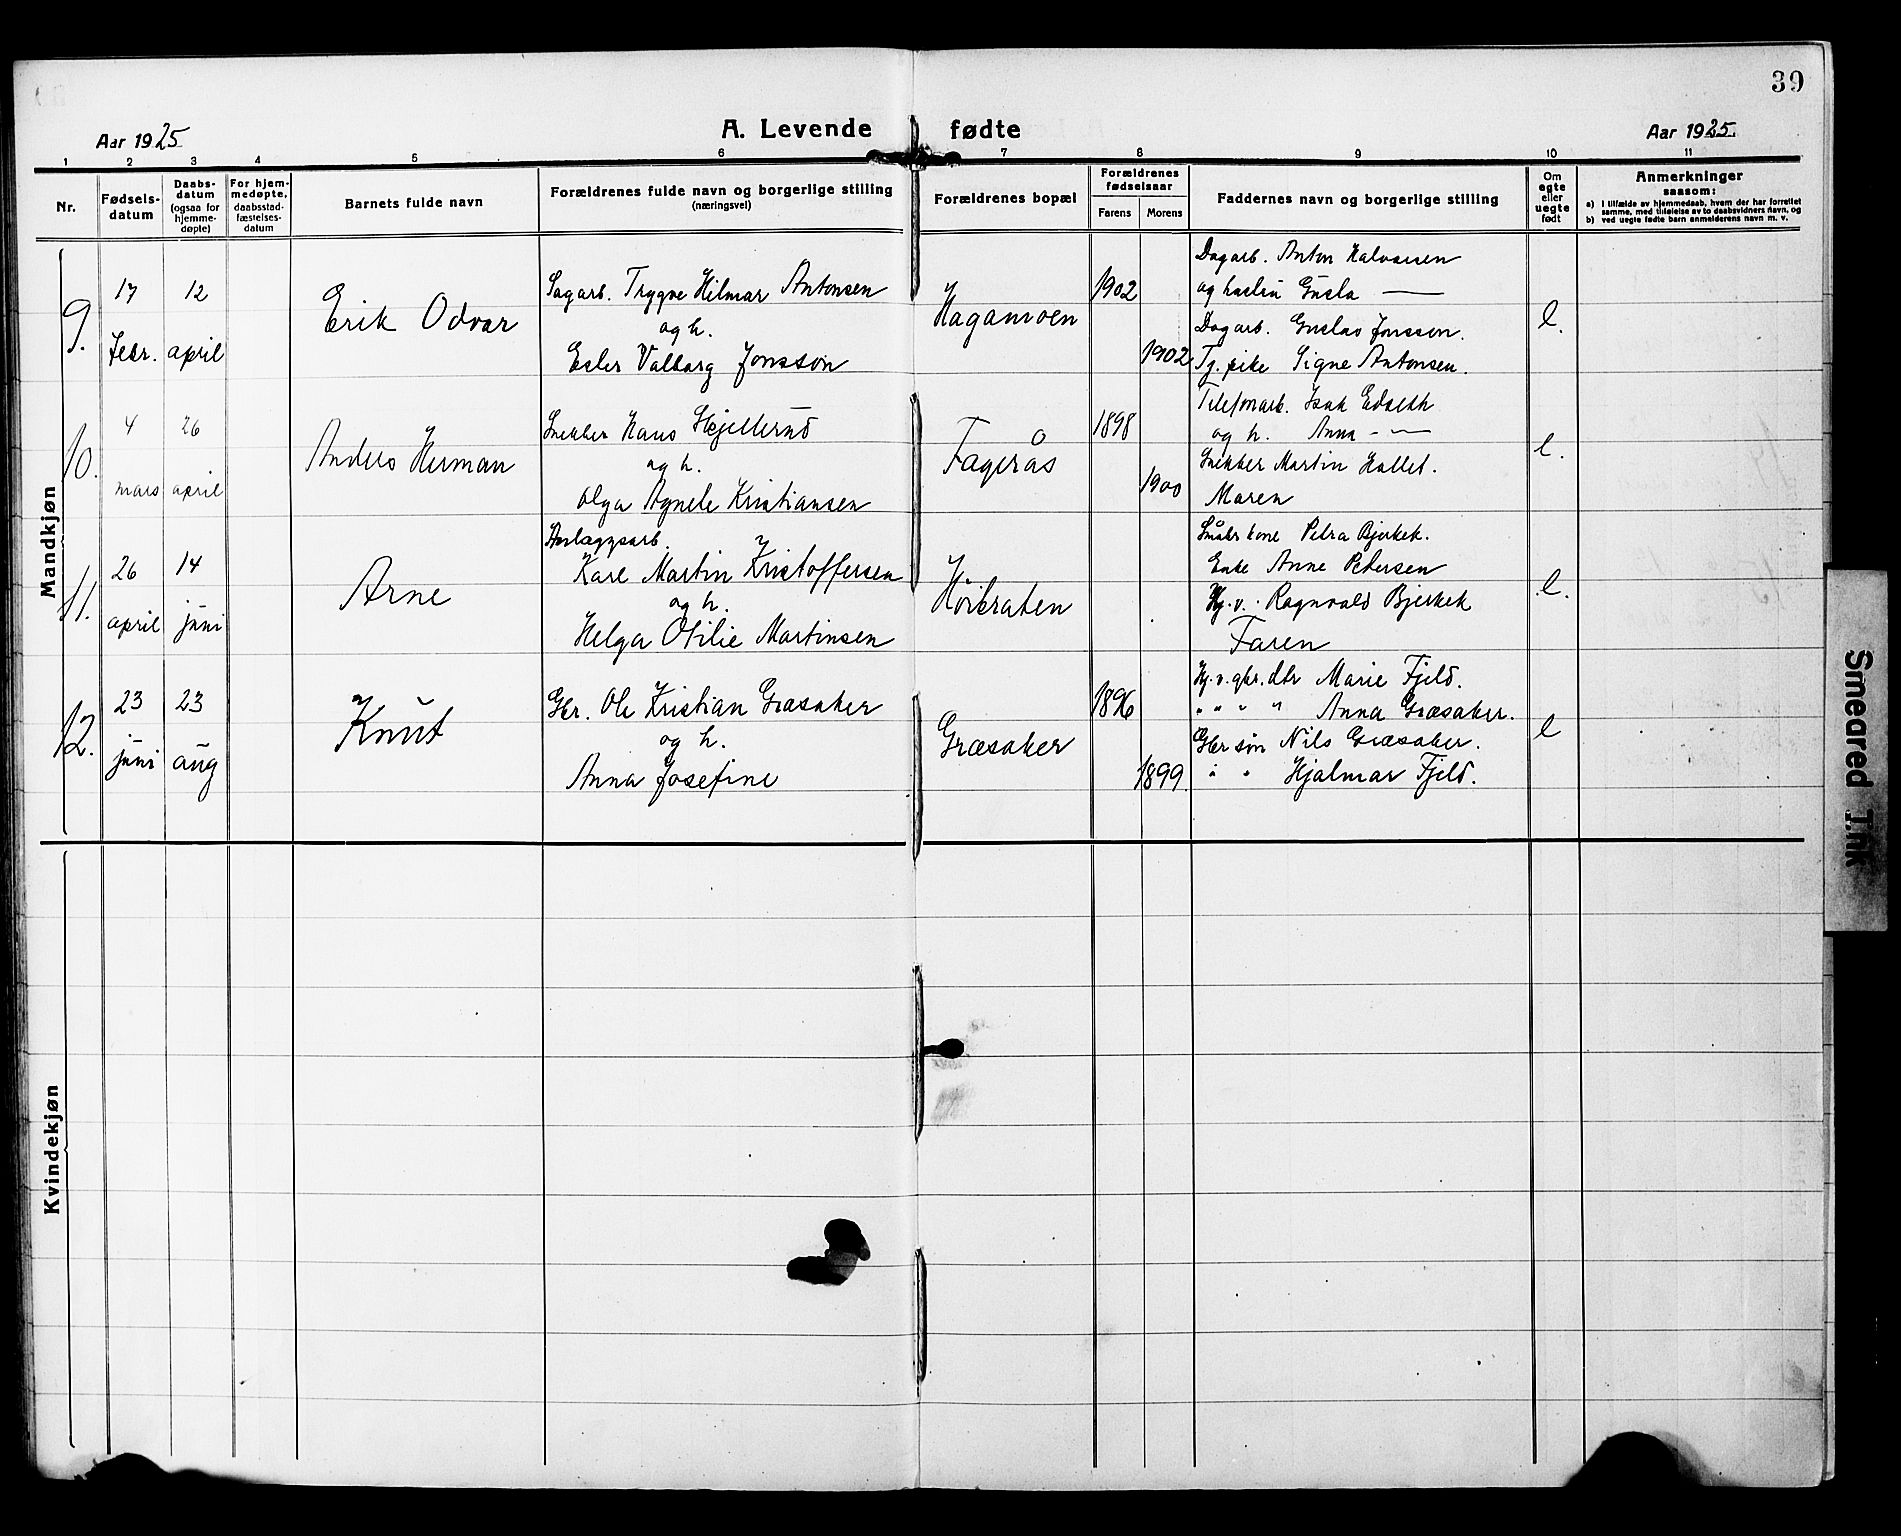 39
A. Levende fødte
Aar 1925
Aar 1925.
1 2 3 4 5 6 7 8 9 10 11
Nr.
Fødsels-
datum
Daabs-
datum
(ogsaa for
hjemme-
døpte)
For hjem-
medøpte,
daabsstad-
fæstelses-
datum
Barnets fulde navn
Forældrenes fulde navn og borgerlige stilling
(næringsvei)
Forældrenes bopæl
Forældrenes
fødselsaar
Farens Morens
Faddernes navn og borgerlige stilling
Om
egte
eller
uegte
født
Anmerkninger
saasom:
a) I tilfælde av hjemmedaab, hvem der har forrettet
samme, med tilføielse av to daabsvidners navn, og
b) ved uegte fødte barn anmelderens navn m. v.
Mandkjøn
9.
17
Febr.
12
april
Erik Odvar
Sagarb. Trygve Hilmar Antonsen
og h.
Ester Valborg Jonsson
Hagamoen
1902
1902
Dagarb. Anton Halvorsen
og hustru Gusta —
Dagarb. Gustav Jonsson.
Tj. pike Signe Antonsen.
e.
10.
4
mars
26
april
Anders Herman
Snekker Hans Skjellerud
og h.
Olga Agnete Kristiansen
Fagerås
1898
1900
Telefonarb. Isak Edseth
og h. Anna - —
Snekker Martin Hallet.
Moren
e.
11.
26
april
14
juni
Arne
Anlæggsarb.
Karl Martin Kristoffersen
og h.
Helga Otilie Martinsen
Höibraten
Småbr kone Petra Bjerkek.
Enke Anne Petersen
Hj. v. Ragnvald Bjerkek
Faren
e.
12.
23
juni
23
aug
Knut
Gbr. Ole Kristian Græsaker
og h.
Anna Josefine
Græsaker
1896
1899.
Hj. v. gbr. dtr Marie Fjeld.
" " " " Anna Græsaker.
Gbr søn Nils Græsaker.
" " Hjalmar Fjeld.
e
Kvindekjøn
Smeared Ink